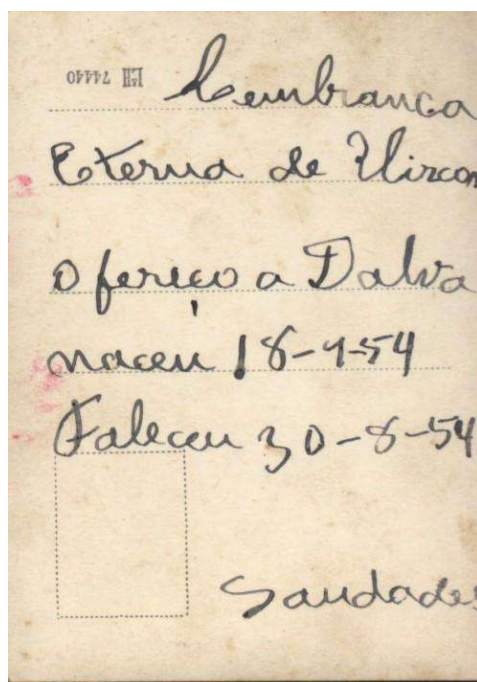 LH 74440
Lembranca
Eterna de Wirson
Ofereço a Dalva
naceu 18-7-54
Faleceu 30-8-54
Saudades